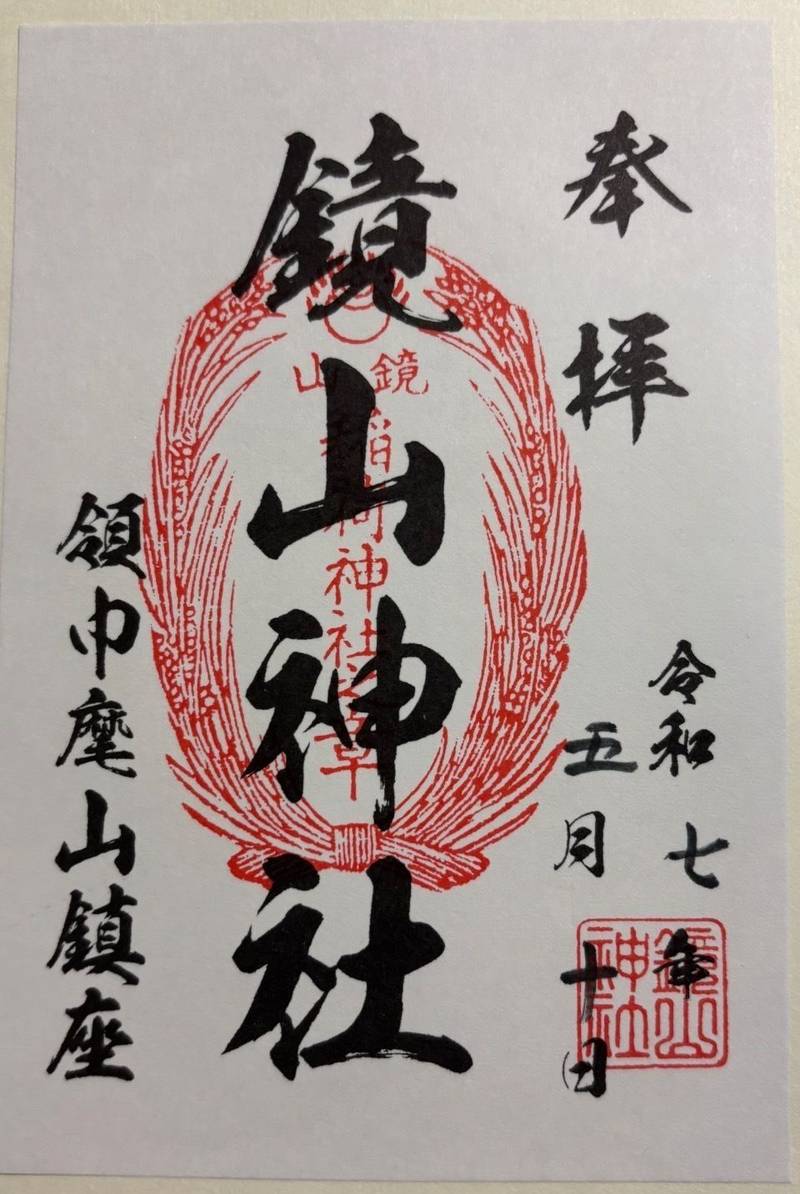 奉拝
令和七年
五月十日
鏡山神社
鏡山
稲荷神社之章
領巾麾山鎮座
鏡山
神社